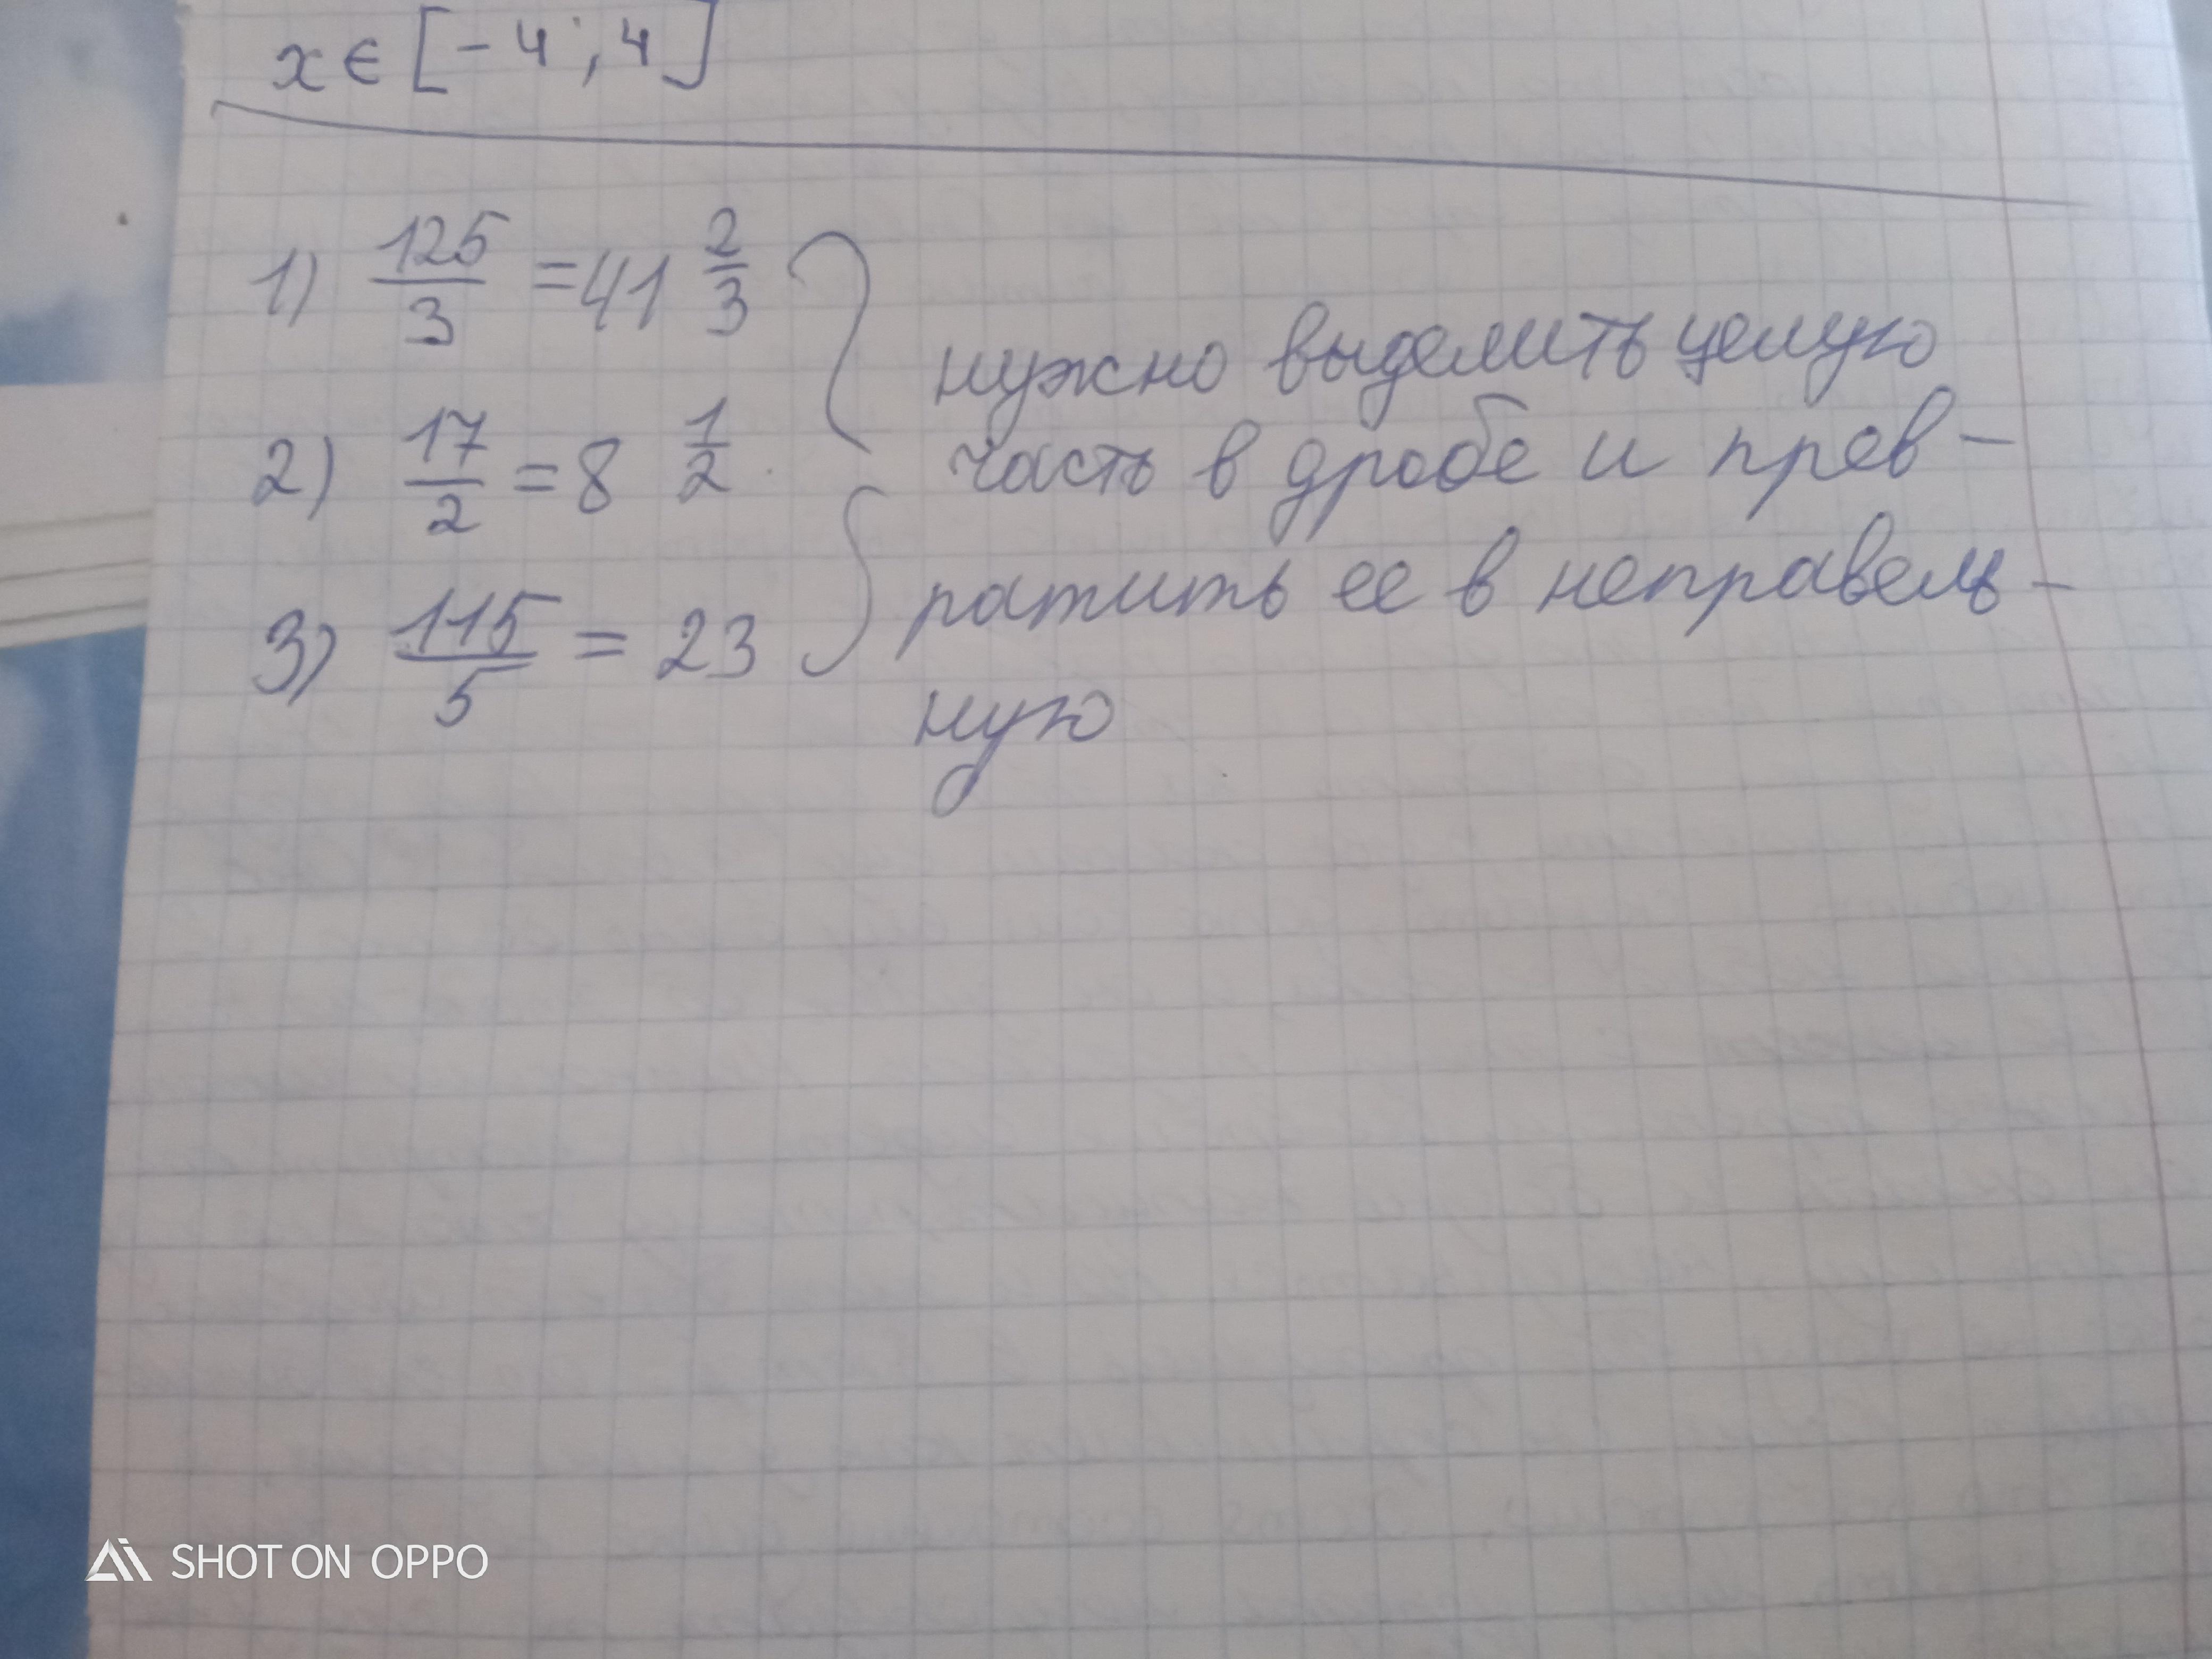 x ∈ [-4; 4]
1) 125/3 = 41 2/3
2) 17/2 = 8 1/2
3) 115/5 = 23
нужно выделить целую
часть в дробе и прев-
ратить ее в неправель-
ную
SHOT ON OPPO